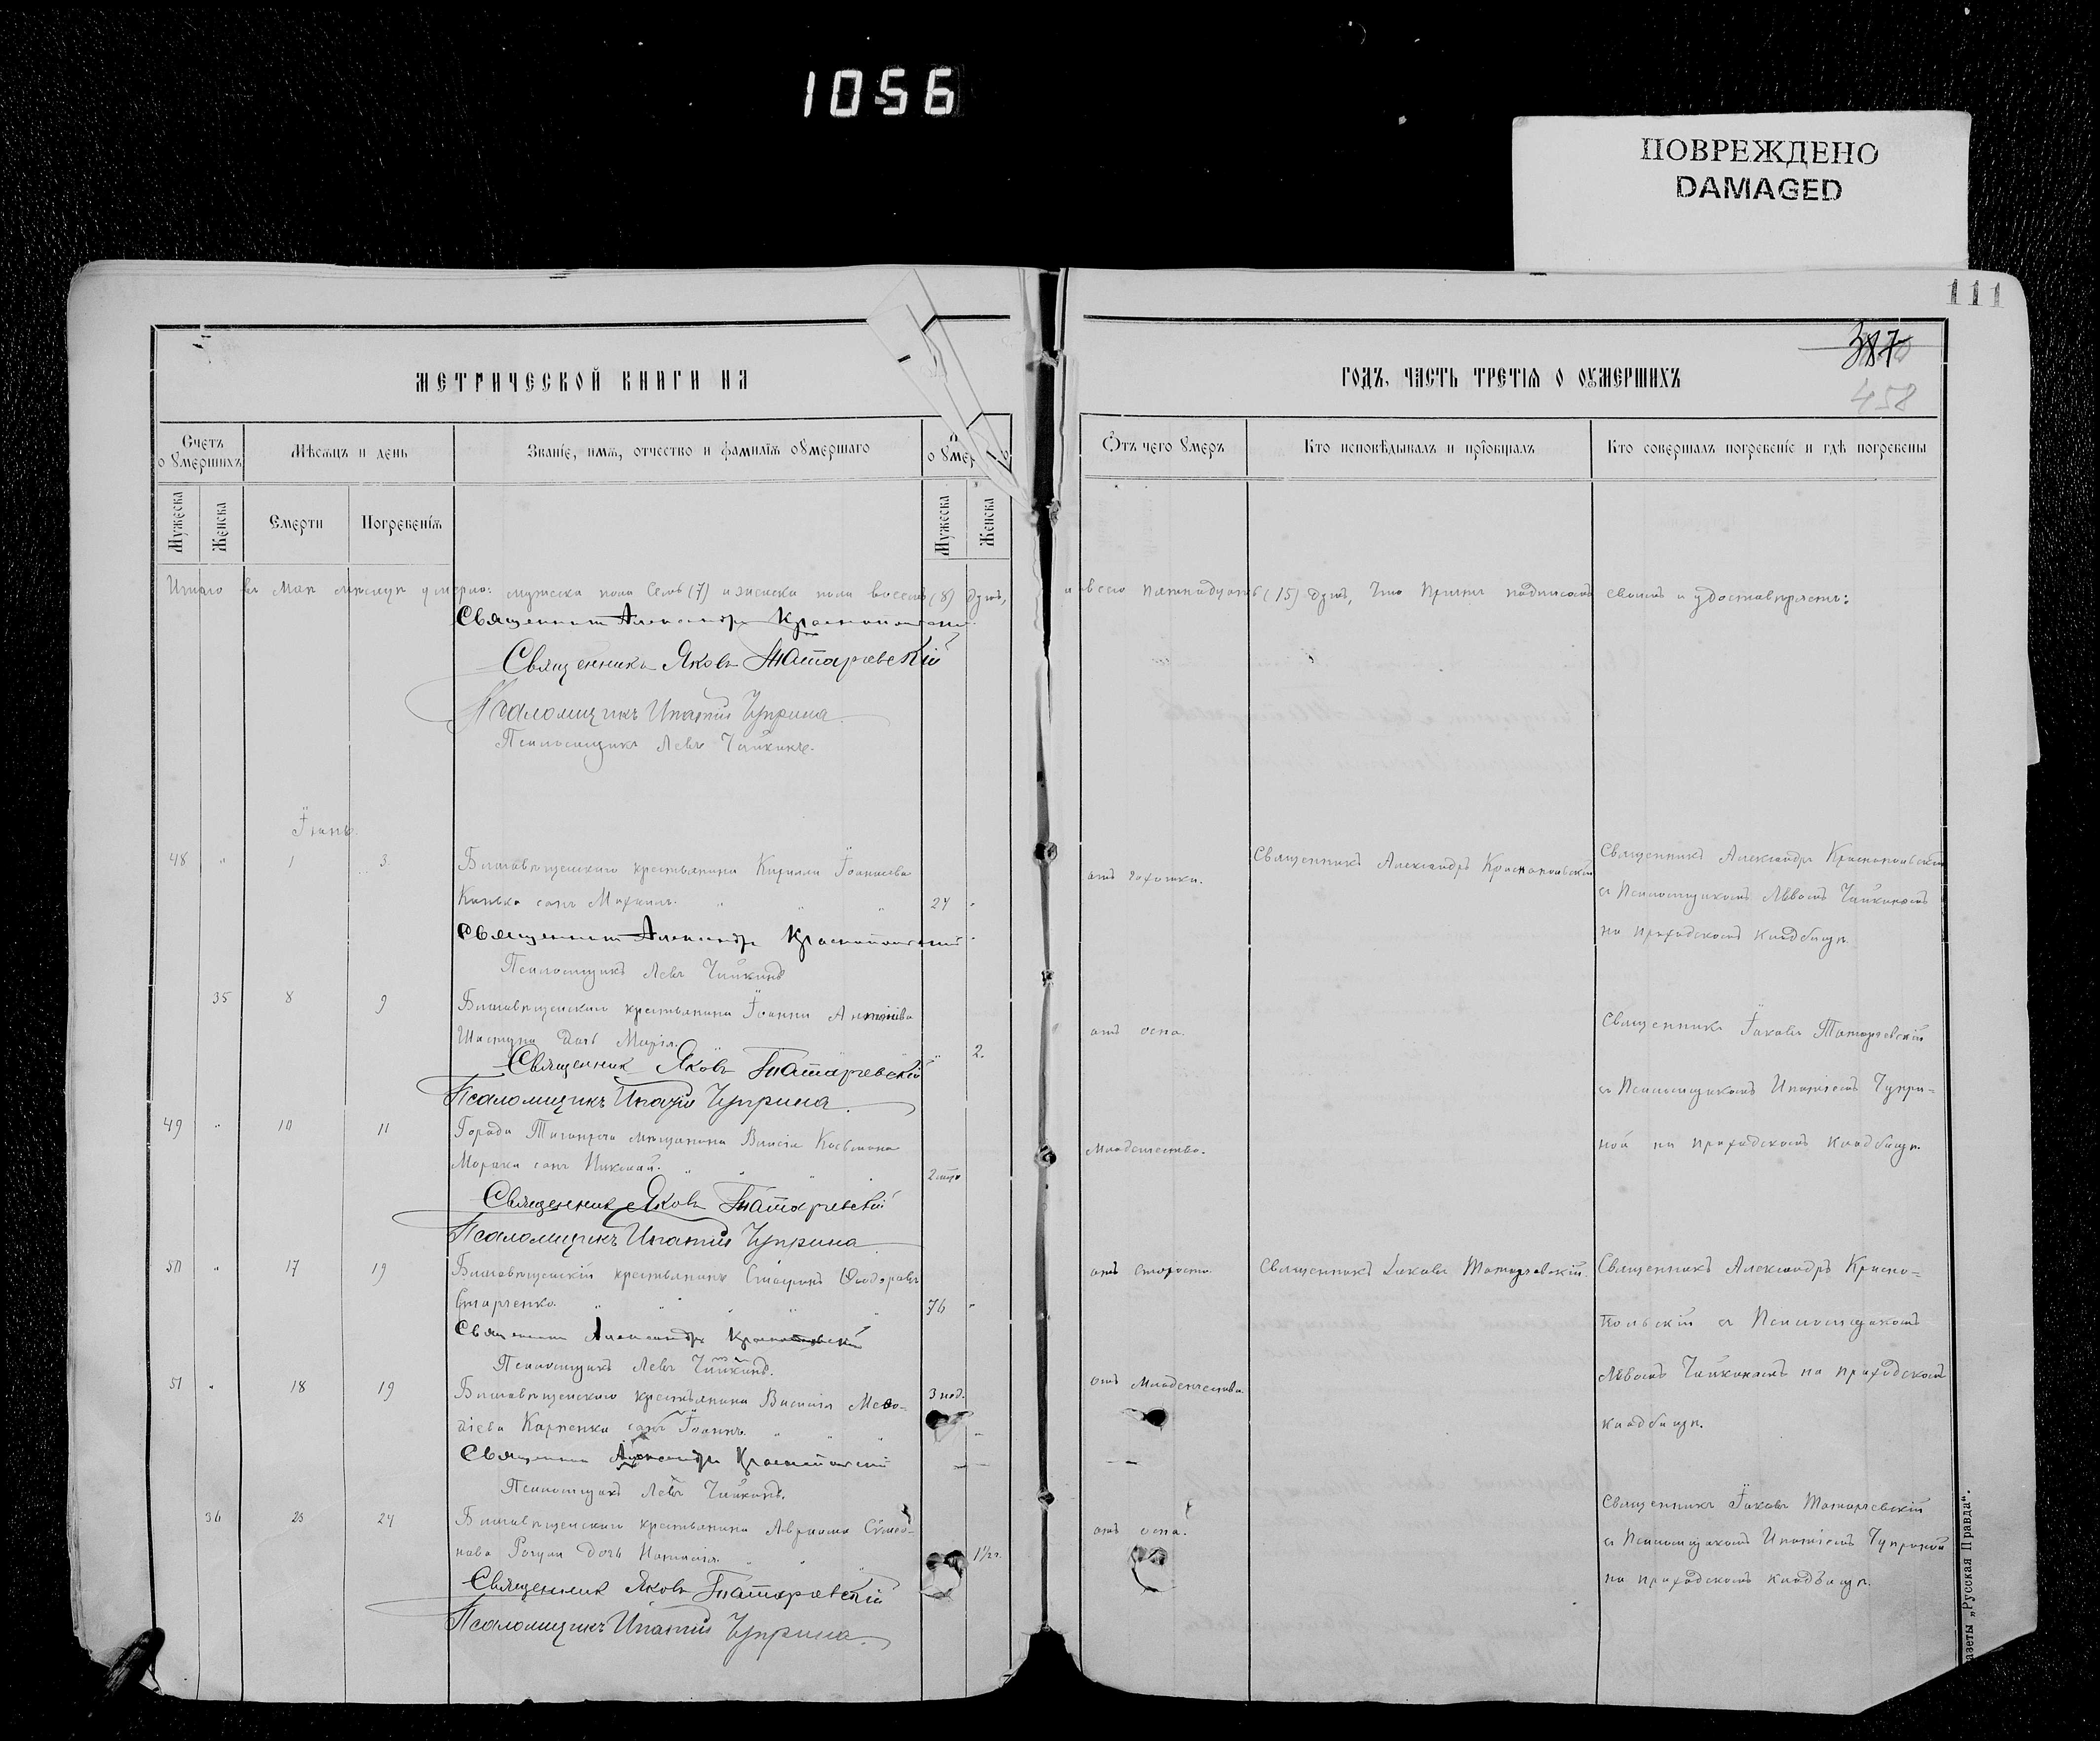 1056
ПОВРЕЖДЕНО
DAMAGED
111
387
458
МЕТРИЧЕСКОЙ КНИГИ НА
ГОДЪ, ЧАСТЬ ТРЕТІЯ О ОУМЕРШИХЪ
Счетъ оумершихъ
Мѣсяцъ и день
Званіе, имя, отчество и фамилія оумершаго
Отъ чего умеръ
Кто исповѣдывалъ и пріобщалъ
Кто совершалъ погребеніе и гдѣ погребены
Мужеска
Женска
Смерти
Погребенія
Мужеска
Женска
Итого въ маѣ мѣсяцѣ умерло: мужеска пола семь (7) и женска пола восемь (8) душъ, а всего пятнадцать (15) душъ, Что причтъ подписомъ своимъ и удостовѣряетъ:
Священникъ Александръ Краснопольскій
Священникъ Яковъ Татаревскій
Псаломщикъ Ипатій Чуприна
Псаломщикъ Левъ Чайкинъ.
Іюнь.
48 " 1 3. крестьянина Кирилла Священникъ Александръ Краснопольскій Священникъ Александръ Краснопольскій
сынъ 24 " съ Псаломщикомъ Львомъ Чайкинымъ
Священникъ Александръ Краснопольскій на приходскомъ кладбищѣ.
Псаломщикъ Левъ Чайкинъ
35 8 9 крестьянина Іоанна отъ оспы. Священникъ Іаковъ Татаревскій
дочь Марія. " 2.
Священник Яковъ Татаревскій съ Псаломщикомъ Ипатіемъ Чупри-
Псаломщикъ Ипатій Чуприна
49 " 10 11 Города Таганрога мѣщанина Младенчество. ной на приходскомъ кладбищѣ.
сынъ Николай.
Священник Яковъ Татаревскій
Псаломщикъ Ипатій Чуприна
50 " 17 19 крестьянинъ Ѳеодоровъ отъ старости. Священникъ Іаковъ Татаревскій. Священникъ Александръ Красно-
Старченко. 76 "
Священникъ Александръ Краснопольскій польскій съ Псаломщикомъ
Псаломщикъ Левъ Чайкинъ.
51 " 18 19 крестьянина Василія Меѳо- 3 нед. отъ младенчества. Львомъ Чайкинымъ на приходскомъ
діева Карпенка сынъ Іоаннъ. кладбищѣ.
Священникъ Александръ Краснопольскій
Псаломщикъ Левъ Чайкинъ.
36 23 24 крестьянина Авраама Сѵмео- отъ оспы. Священникъ Іаковъ Татаревскій
нова дочь Наталія. 1½ г. съ Псаломщикомъ Ипатіемъ Чуприной
Священник Яковъ Татаревскій на приходскомъ кладбищѣ.
Псаломщикъ Ипатій Чуприна
газеты „Русская Правда“.